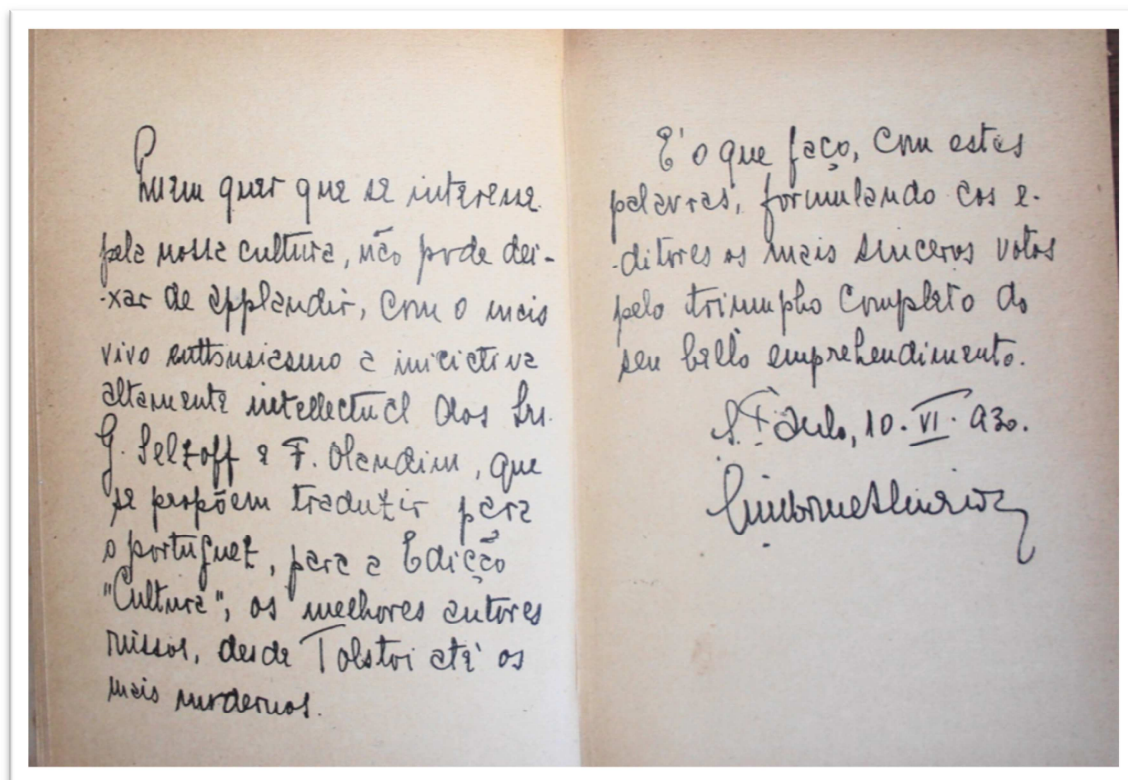 Quem quer que se interesse
pela nossa cultura, não pode dei-
-xar de applaudir, com o mais
vivo enthusiasmo a iniciativa
altamente intellectual dos Srs.
G. Selzoff e F. Olandim, que
se propõem traduzir para
o portuguez, para a Edição
"Cultura", os melhores autores
russos, desde Tolstoi até os
mais modernos.
E' o que faço, com estas
palavras, formulando aos e-
-ditores os mais sinceros votos
pelo triumpho completo do
seu bello emprehendimento.
S. Paulo, 10. VI. 930.
Guilherme de Almeida